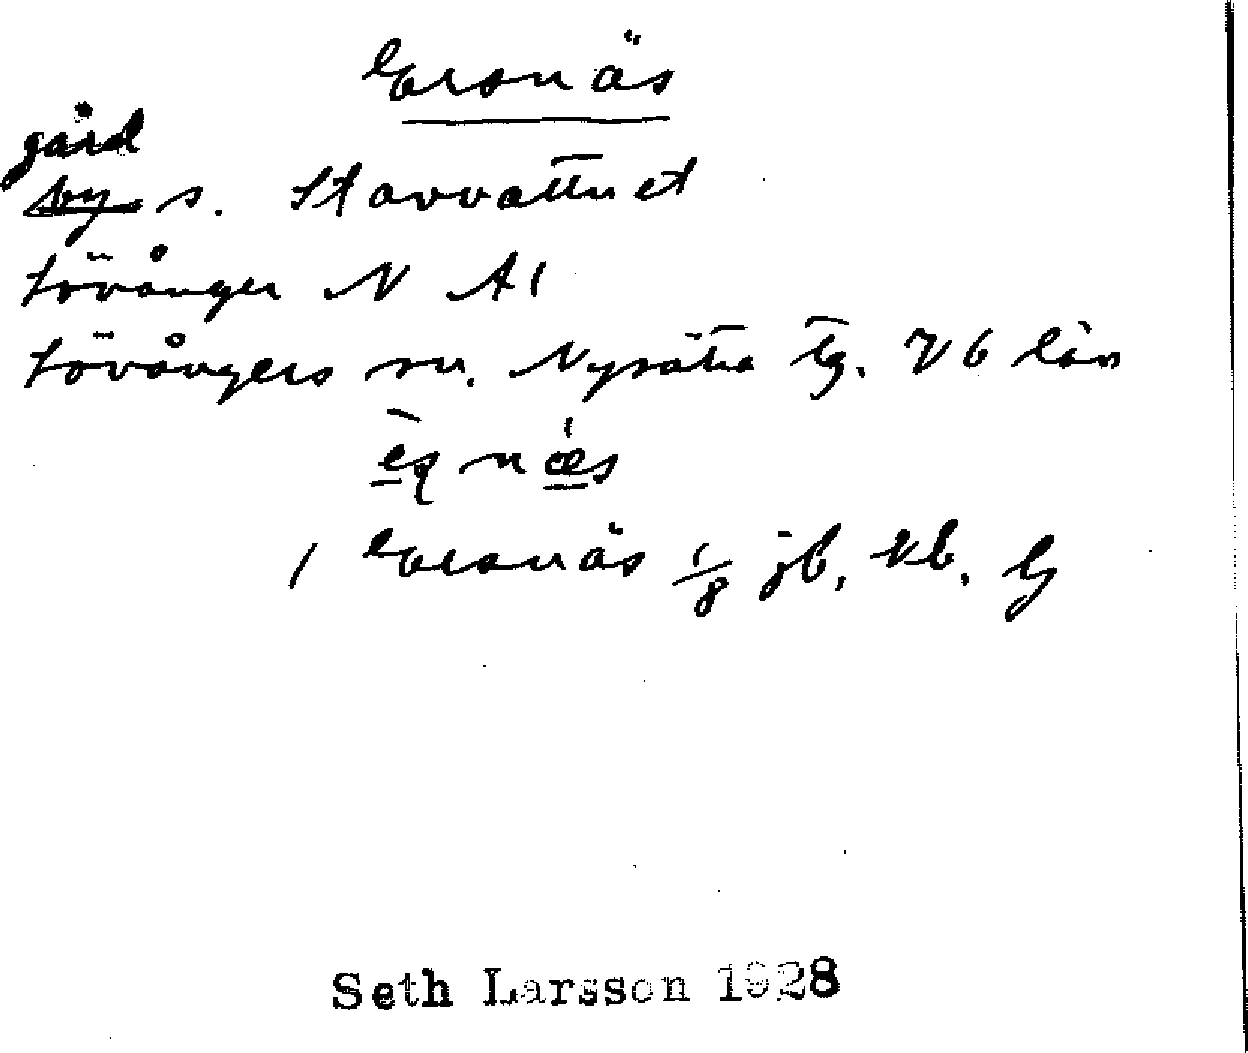 Ersnäs
gård
by s. Stavvattnet
Lövånger N A1
Lövångers sn. Nysätra tg. Vb län
næs
1 Ersnäs 1/8 jb, kb, G
Seth Larsson 1928